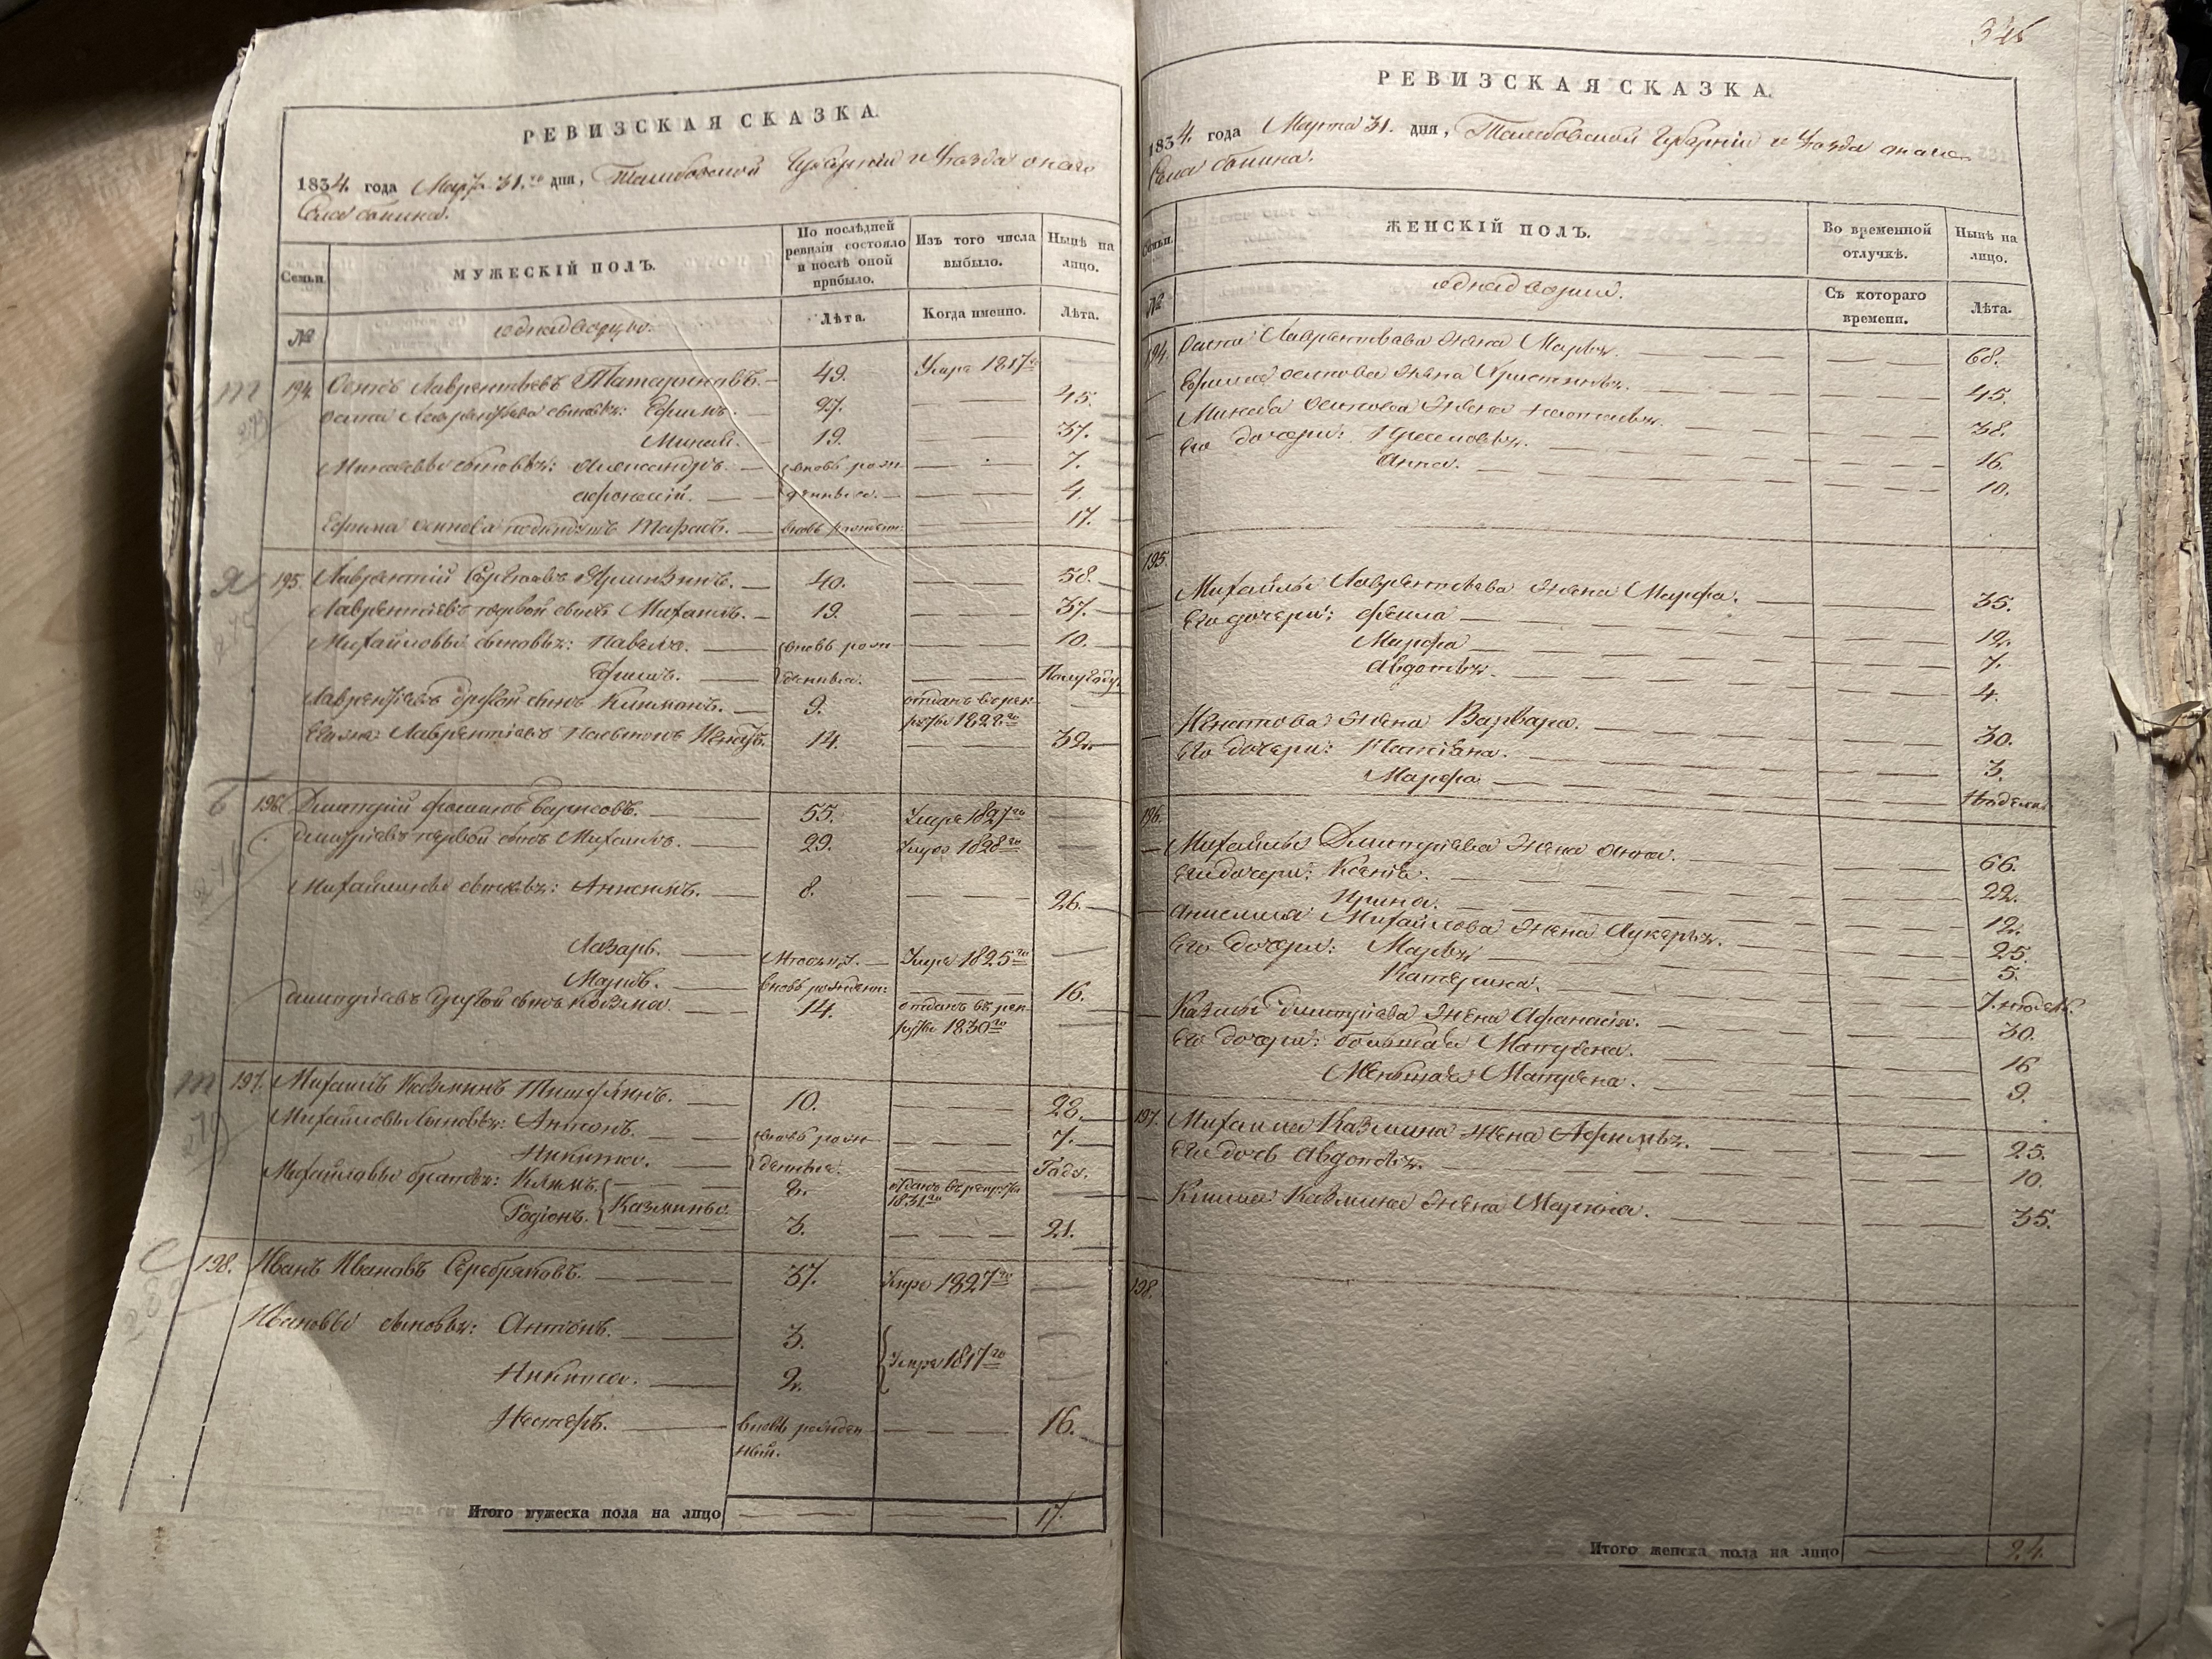 РЕВИЗСКАЯ СКАЗКА.
1834. года Марта 31.го дня, Тамбовской Губернии и Уезда онаго
Села
Семьи.
МУЖЕСКІЙ ПОЛЪ.
По послѣдней ревизіи состояло и послѣ оной прибыло.
Изъ того числа выбыло.
Нынѣ на лицо.
№
однодворцы.
Лѣта.
Когда именно.
Лѣта.
194. Осипъ Лаврентьевъ Татариновъ. 49. Умре 1817го
Осипа Лаврентьева сыновья: Ефимъ. 27. 45.
Минай. 19. 37.
Минаевы сыновья: Александръ. вновь рож 7.
Афонасій. денные. 4.
Ефима Осипова подкидышъ Тарасъ. вновь рожден: 17.
195. Лаврентій Сергеевъ 40. 58.
Лаврентьевъ первой сынъ Михаилъ. 19. 37.
Михайловы сыновья: Павелъ. вновь рож 10.
Ефимъ. денные. Полугоду.
Лаврентьевъ другой сынъ 9. отданъ в рек руты 1828го
Лаврентіевъ 14. 32.
196. Дмитрій Фоминъ Барисовъ. 55. Умре 1827го
Дмитріевъ первой сынъ Михаилъ. 29. Умре 1828го
Михайловы сыновья: Анисимъ. 8. 26.
Лазарь. Умре 1825го
Марко. вновь рожден: 16.
Дмитріевъ другой сынъ Козма. 14. отданъ въ рек руты 1830го
197. Михаилъ Казминъ 10. 28.
Михайловы сыновья: Антонъ. вновь рож 7.
Никита. денные. Году.
Михайловы братья: Климъ. 8. отданъ в рекруты 1831го
Родіонъ. Казмины. 3. 21.
198. Иванъ Ивановъ Серебряковъ. 37. Умре 1827го
Ивановы сыновья: Антонъ. 3.
Никита. 2. Умре 1817го
Нестеръ. вновь рожден ный. 16.
Итого мужеска пола на лицо 17.
346
РЕВИЗСКАЯ СКАЗКА.
1834. года Марта 31. дня, Тамбовской Губерніи и Уезда онаго
Села
Семьи.
ЖЕНСКІЙ ПОЛЪ.
Во временной отлучкѣ.
Нынѣ на лицо.
№
однодворки.
Съ котораго времени.
Лѣта.
194. Осипа Лаврентьева жена Марья. 68.
Ефима Осипова жена Христинья. 45.
Миная Осипова жена Наталья. 38.
Его дочери: Прасковья. 16.
Анна. 10.
195.
Михайлы Лаврентьева жена Марфа. 35.
Его дочери: Фекла 12.
Марфа 7.
Авдотья. 4.
жена Варвара. 30.
Его дочери: Татіяна. 3.
Марфа Неделя
196.
Михайлы Дмитріева жена Анна. 66.
Его дочери: Ксенія. 22.
Ирина. 12.
Анисима Михайлова жена Лукерья. 25.
Его дочери: Марья 5.
Катерина. 7. недель.
Казмы Дмитріева жена Афанасія. 30.
Его дочери: большая Матрена. 16
Меньшая Матрена. 9.
197. Михаила Казмина жена Афимья. 25.
Его дочь Авдотья. 10.
Клима Казмина жена Марина. 35.
198.
Итого женска пола на лицо 24.